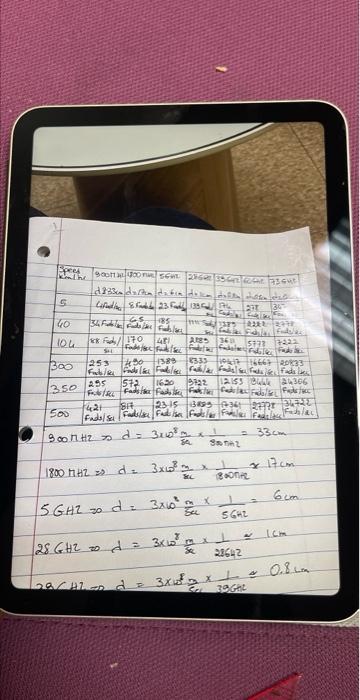 Speed km/hr 900MHZ 1800MHZ 5GHZ 28GHZ 39GHZ 60GHZ 73GHZ
d≈33cm d≈17cm d≈6cm
5 4 Fads/sec 8 Fads/sec 23 Fads/sec 139 Fads/sec 174 Fads/sec 278 Fads/sec 347 Fads/sec
40 34 Fads/sec 65 Fads/sec 185 Fads/sec 1111 Fads/sec 1389 Fads/sec 2222 Fads/sec 2778 Fads/sec
104 88 Fads/sec 170 Fads/sec 481 Fads/sec 2889 Fads/sec 3611 Fads/sec 5778 Fads/sec 7222 Fads/sec
300 253 Fads/sec 490 Fads/sec 1389 Fads/sec 8333 Fads/sec 10417 Fads/sec 16667 Fads/sec 20833 Fads/sec
350 295 Fads/sec 572 Fads/sec 1620 Fads/sec 9722 Fads/sec 12153 Fads/sec 19444 Fads/sec 24306 Fads/sec
500 421 Fads/sec 817 Fads/sec 2315 Fads/sec 13889 Fads/sec 17361 Fads/sec 27778 Fads/sec 34722 Fads/sec
900MHZ => d = 3x10⁸ m/sec x 1/900MHZ = 33cm
1800MHZ => d = 3x10⁸ m/sec x 1/1800MHZ ≈ 17cm
5GHZ => d = 3x10⁸ m/sec x 1/5GHZ = 6cm
28GHZ => d = 3x10⁸ m/sec x 1/28GHZ ≈ 1cm
39GHZ => d = 3x10⁸ m/sec x 1/39GHZ ≈ 0.8cm